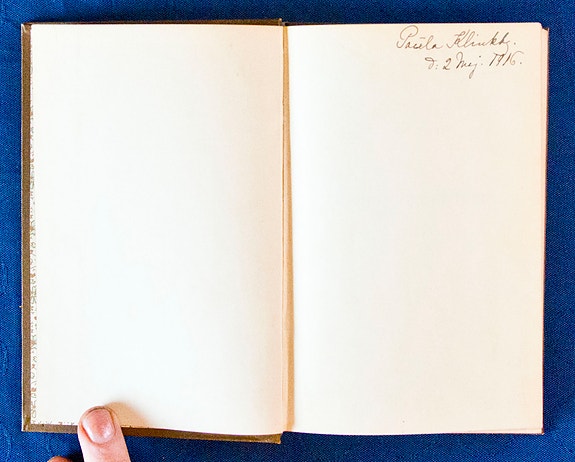 Paula Klinkby.
d: 2 Maj. 1916.